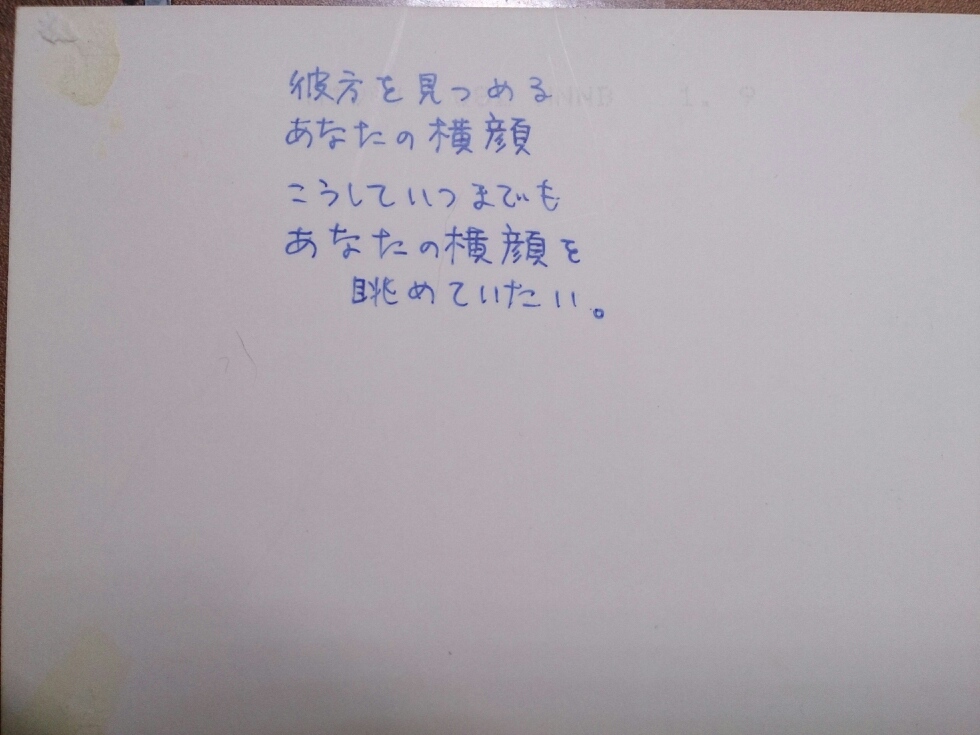 彼方を見つめる
あなたの横顔
こうしていつまでも
あなたの横顔を
眺めていたい。